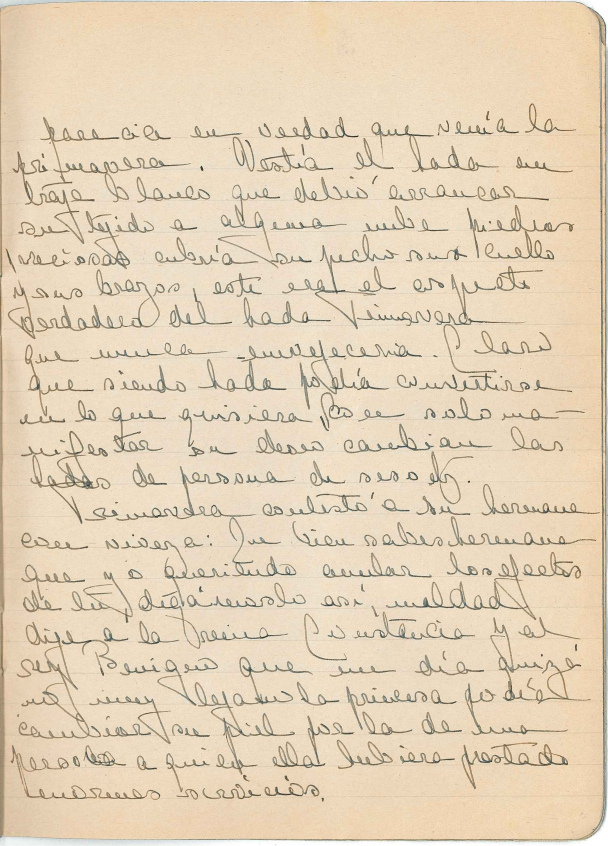 parecía en verdad que venía la
primavera. Vestía el hada un
traje blanco que debió arrancar
su tejido a alguna nube piedras
preciosas cubría su pecho sus cuello
y sus brazos, este era el aspecto
verdadero del hada Primavera
que nunca envejecería. Claro
que siendo hada podía convertirse
en lo que quisiera, con solo ma-
nifestar su deseo cambian las
hadas de persona de sexo etz.
Primavera contestó a su hermana
con viveza: Tu bien sabes hermana
que yo queriendo anular los efectos
de tu, digámoslo así, maldad
dije a la reina Constancia y al
rey Benigno que un día quizá
no muy lejano la princesa podía
cambiar su piel por la de una
persona a quien ella hubiera prestado
enormes servicios.